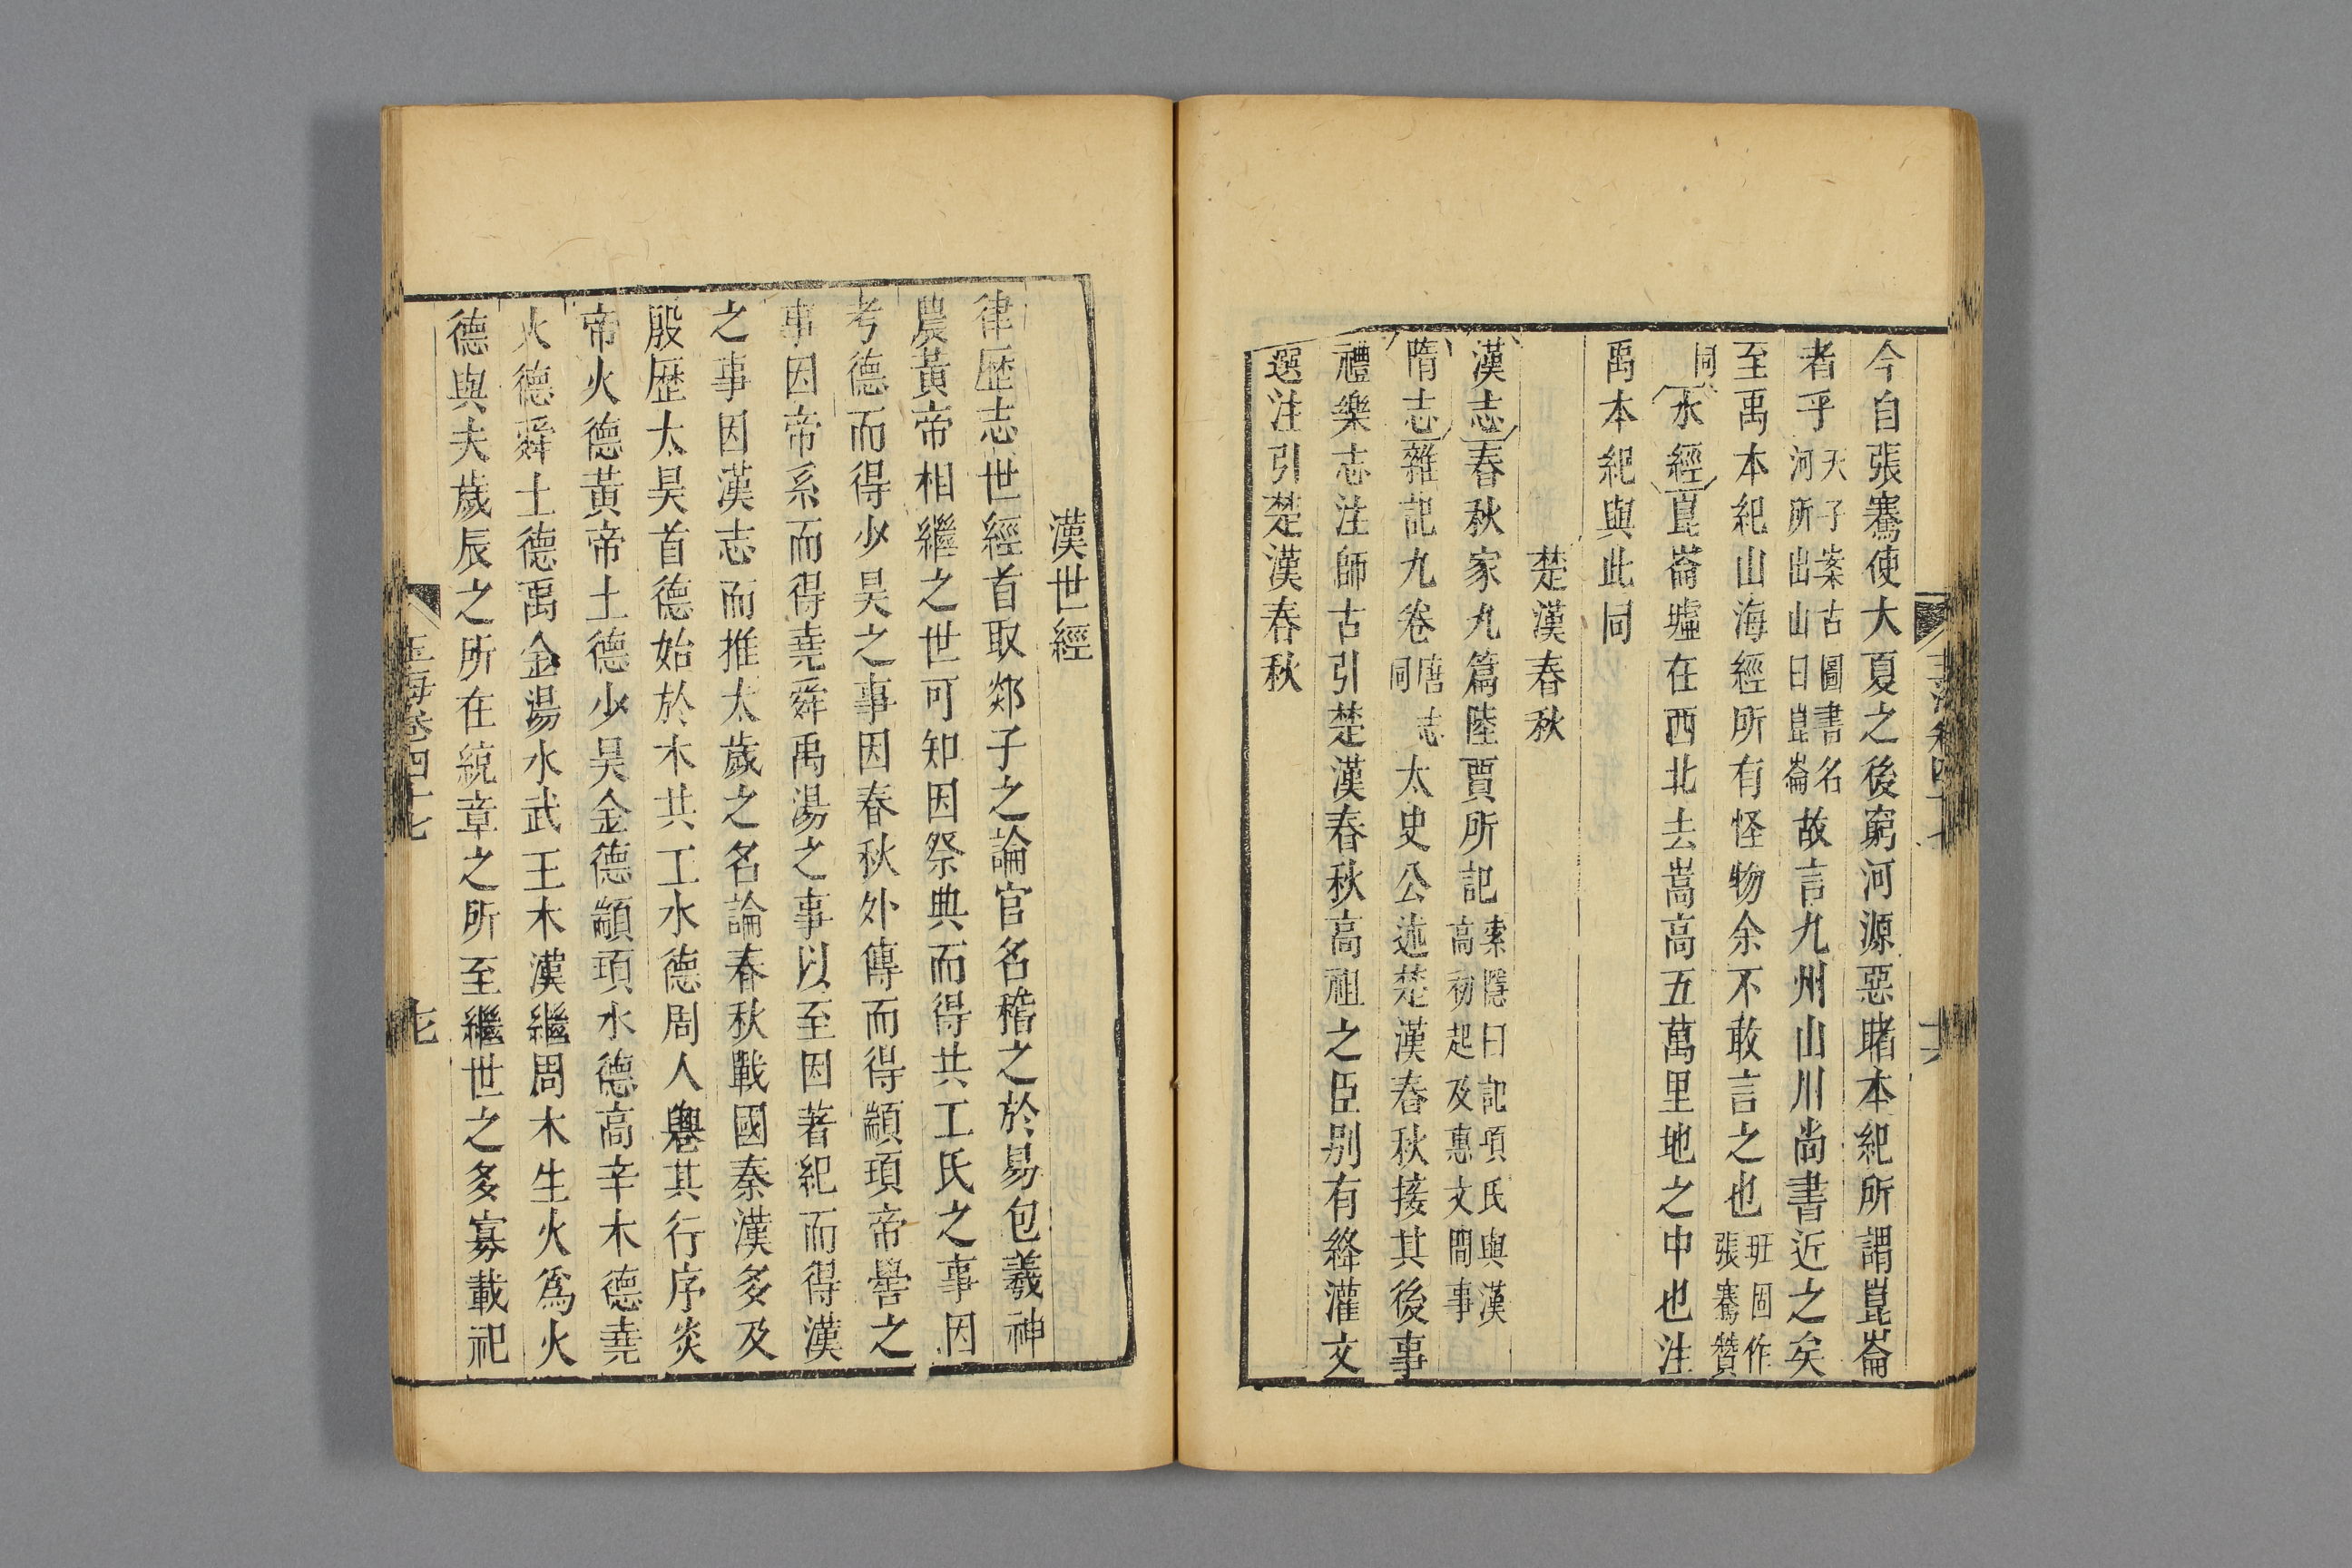 今自張騫使大夏之後窮河源惡睹本紀所謂崑崙
者乎天子案古圖書名河所出山曰崑崙故言九州山川尚書近之矣
至禹本紀山海經所有怪物余不敢言之也班固作張騫贊
同水經崑崙墟在西北去嵩高五萬里地之中也注
禹本紀與此同
楚漢春秋
漢志春秋家九篇陸賈所記索隱曰記項氏與漢高初起及惠文間事
隋志雜記九卷唐志同太史公述楚漢春秋接其後事
禮樂志注師古引楚漢春秋高祖之臣別有絳灌文
選注引楚漢春秋
漢世經
律歴志世經首取郯子之論官名稽之於易包羲神
農黃帝相繼之世可知因祭典而得共工氏之事因
考德而得少昊之事因春秋外傳而得顓頊帝嚳之
事因帝系而得堯舜禹湯之事以至因著紀而得漢
之事因漢志而推太歲之名論春秋戰國秦漢多及
殷歴太昊首德始於木共工水德周人䙴其行序炎
帝火德黃帝土德少昊金德顓頊水德高辛木德堯
火德舜土德禹金湯水武王木漢繼周木生火爲火
德與夫歲辰之所在統章之所至繼世之多寡載祀
玉海卷四十七